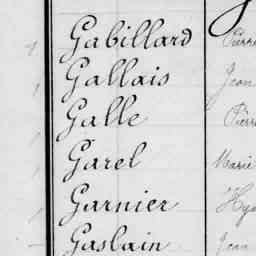 Gabillard Pierre
Gallais Jean
Galle Pierre
Garel Marie
Garnier Hya
Gaslain Jean